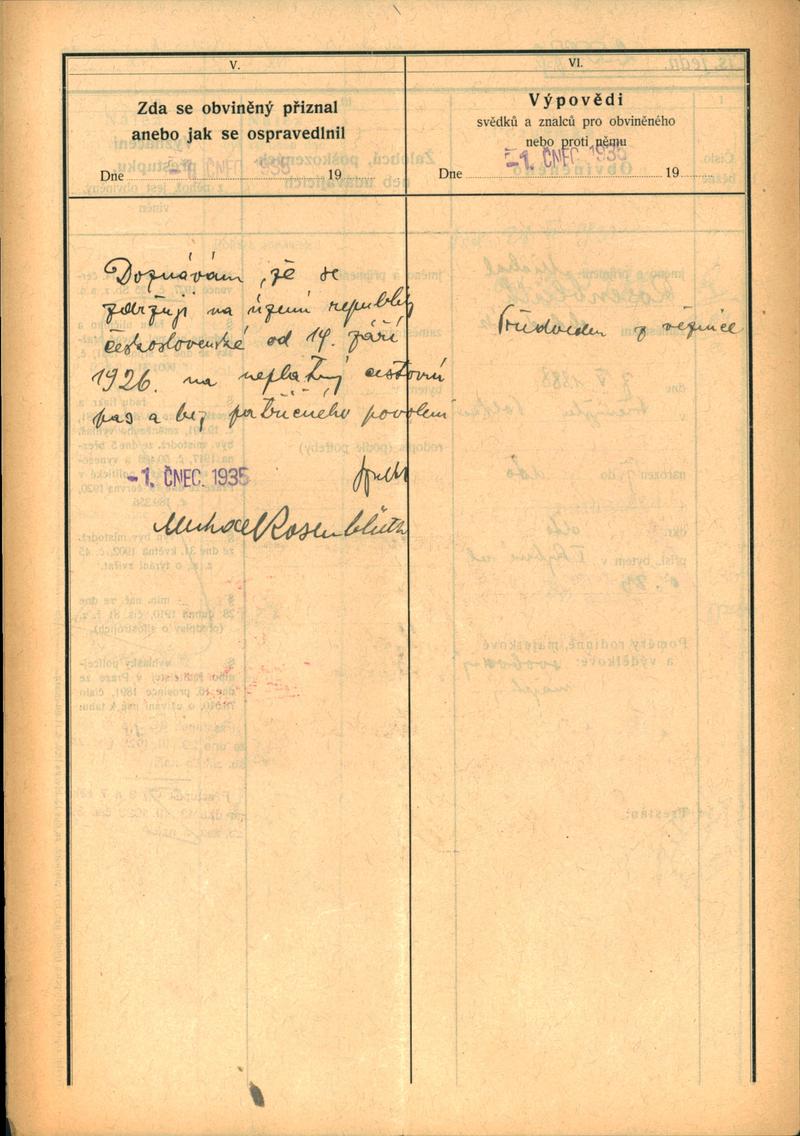 V.
Zda se obviněný přiznal
anebo jak se ospravedlnil
Dne -1. ČNEC. 1935 19
Doznávám, že se
zdržuji na území republiky
československé od 14. září
1926. na neplatný cestovní
pas a bez patřičného povolení
-1. ČNEC. 1935
Michael Rosenblüth
VI.
Výpovědi
svědků a znalců pro obviněného
nebo proti němu
Dne -1. ČNEC. 1935 19
Předveden z věznice